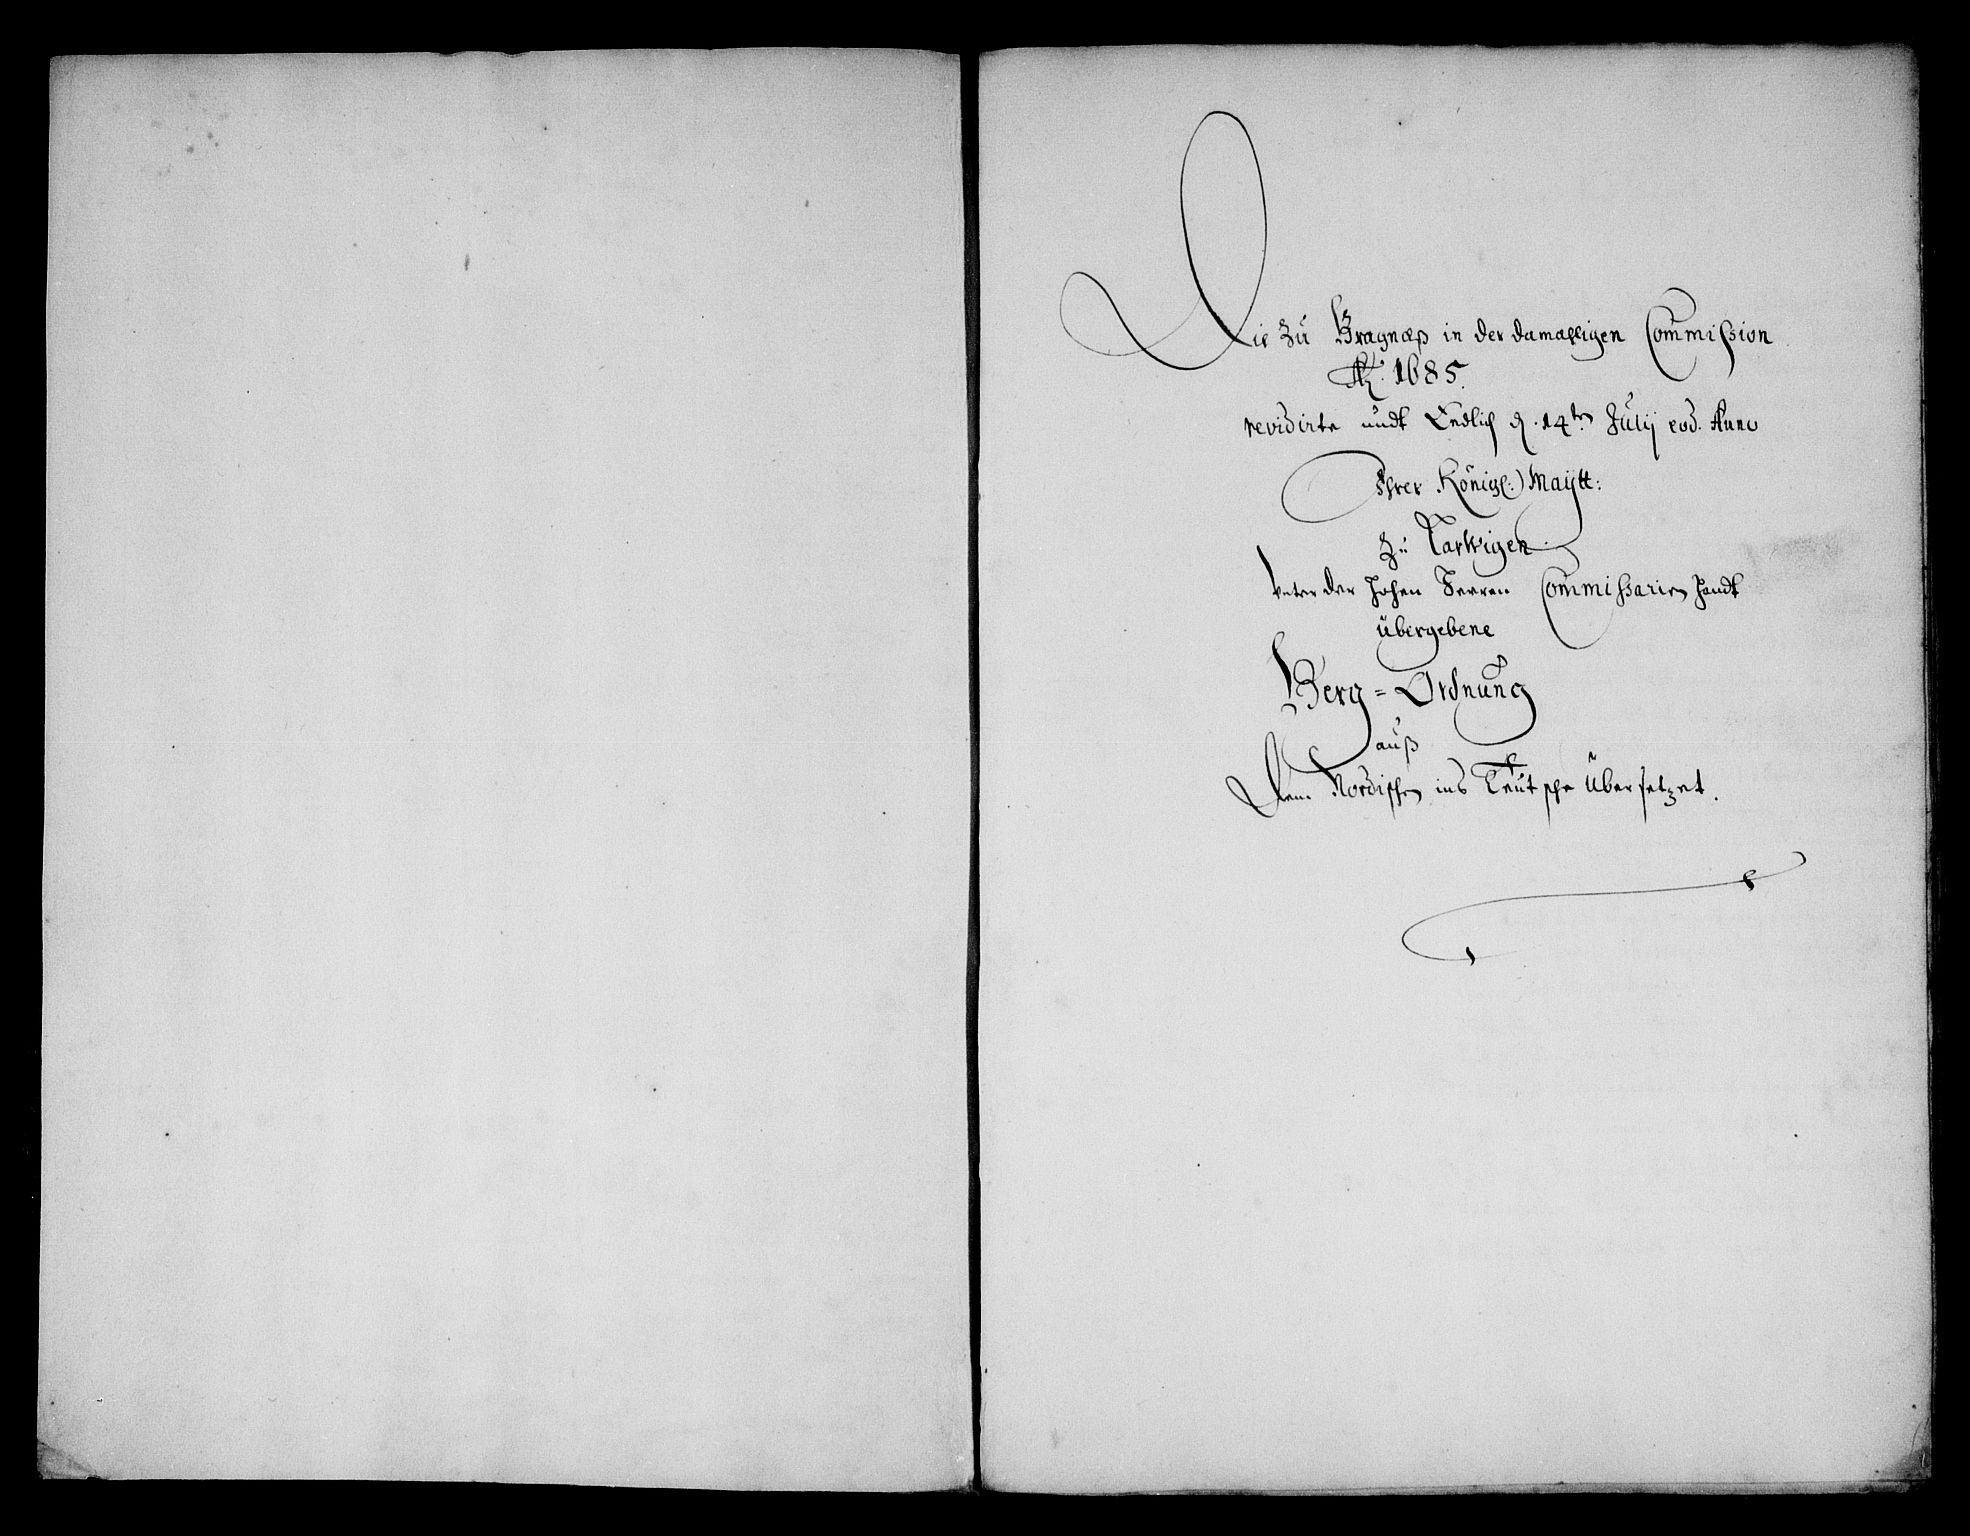 Die zu Bragnæß in der damahligen Commission
Ao. 1685.
revidirte undt Endlich d. 14ten Julij eod. Anno
Ihrer Königl: Maÿtt:
zu Larwigen
unter der hohen Herren Commissarien handt
übergebene
Berg=Ordnung
auß
Dem Nordischen ins Teutsche übersetzet.